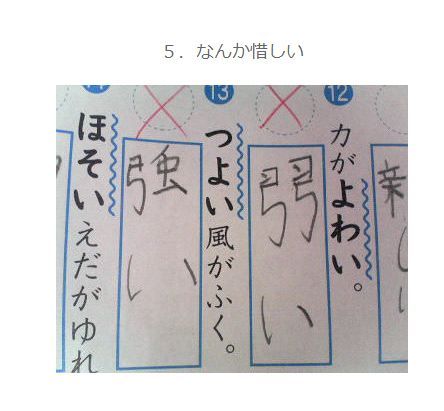 ５．なんか惜しい
12
力がよわい。
弱い
13
つよい風がふく。
強い
ほそいえだがゆれ